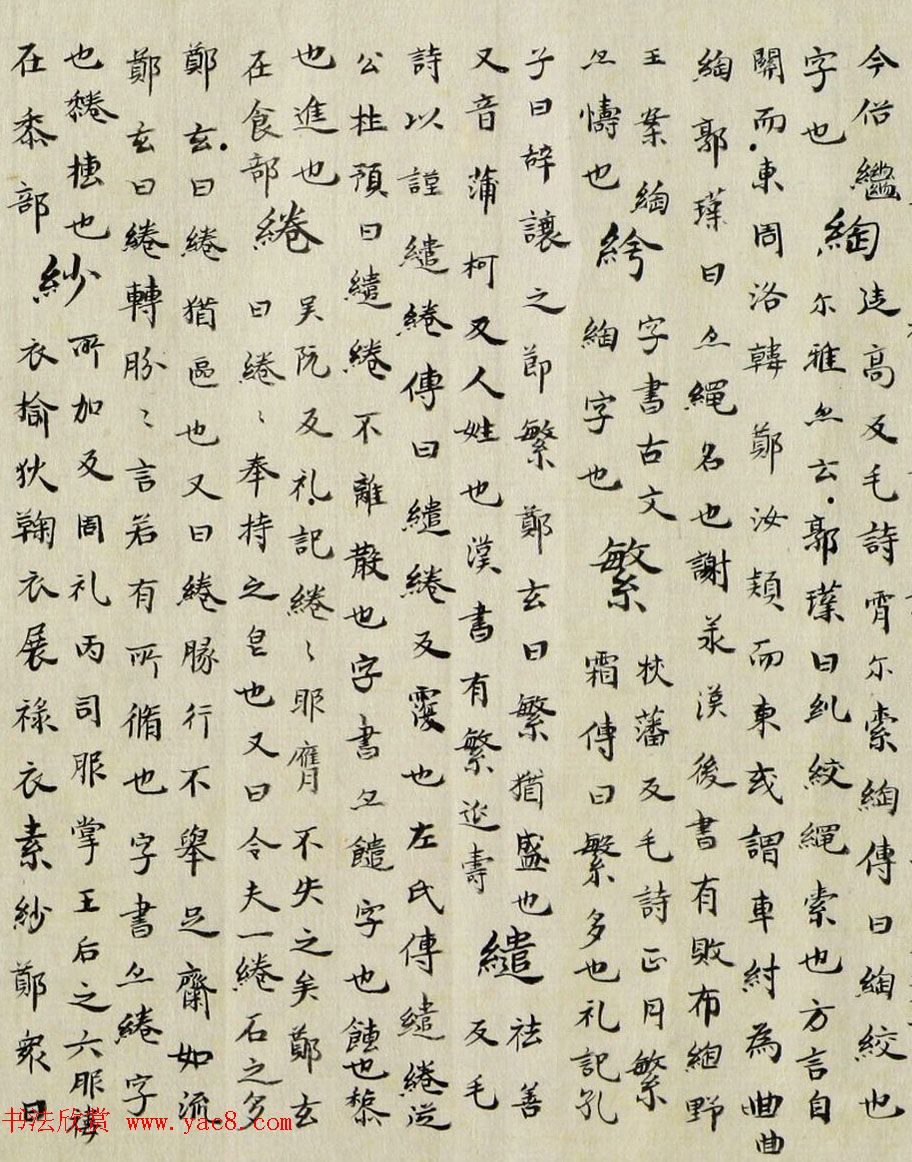 今俗繼綯徒高反毛詩宵尒索綯傳曰綯絞也
字也尒雅亦云郭璞曰糺絞繩索也方言自
關而東周洛韓鄭汝潁而東或謂車紂為曲曲
綯郭璞曰亦繩名也謝承漢後書有敗布綯野
王案綯字書古文繁扶藩反毛詩正月繁
亦幬也綯字也霜傳曰繁多也礼記孔
子曰辤讓之節繁鄭玄曰繁猶盛也繾祛善
又音蒲柯反人姓也漢書有繁延壽反毛
詩以謹繾綣傳曰繾綣反覆也左氏傳繾綣從
公杜預曰繾綣不離散也字書亦字也也黎
也進也綣吴阮反礼記綣〻服膺不失之矣鄭玄
在食部曰綣〻奉持之皃也又曰令夫一綣石之多
鄭玄曰綣猶區也又曰綣豚行不舉足齊如流
鄭玄曰綣轉〻言若有所循也字書亦綣字
也也紗所加反周礼内司服掌王后之六服褘
在黍部衣揄狄鞠衣展褖衣素紗鄭衆曰
书法欣赏 www.yac8.com